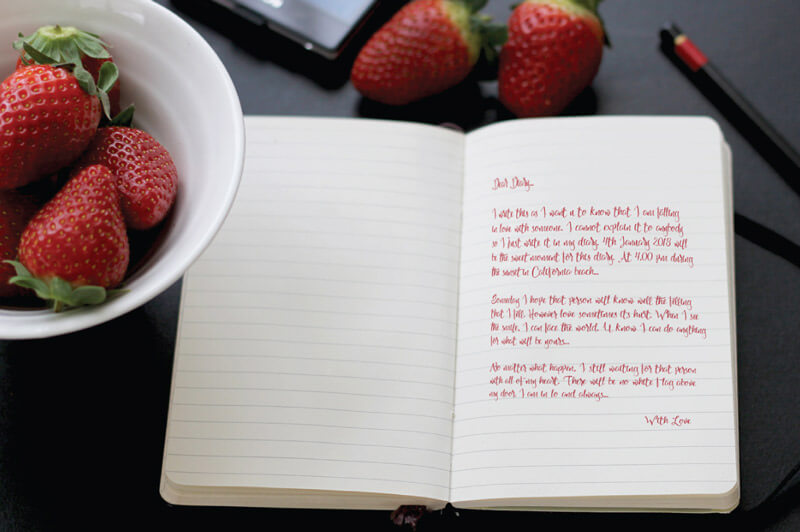 Dear Diary...
I write this as I want u to know that I am falling
in love with someone. I cannot explain it to anybody
so I just write it in my diary. 4th January 2018 will
be the sweet moment for this diary. At 4.00 pm during
the sunset in California beach...
Someday I hope that person will know well the filling
that I fill. However love sometimes its hurt. When I see
the smile, I can face the world. U know I can do anything
for what will be yours...
No matter what happen, I still waiting for that person
with all of my heart. There will be no white flag above
my door I am in lo and always...
With Love